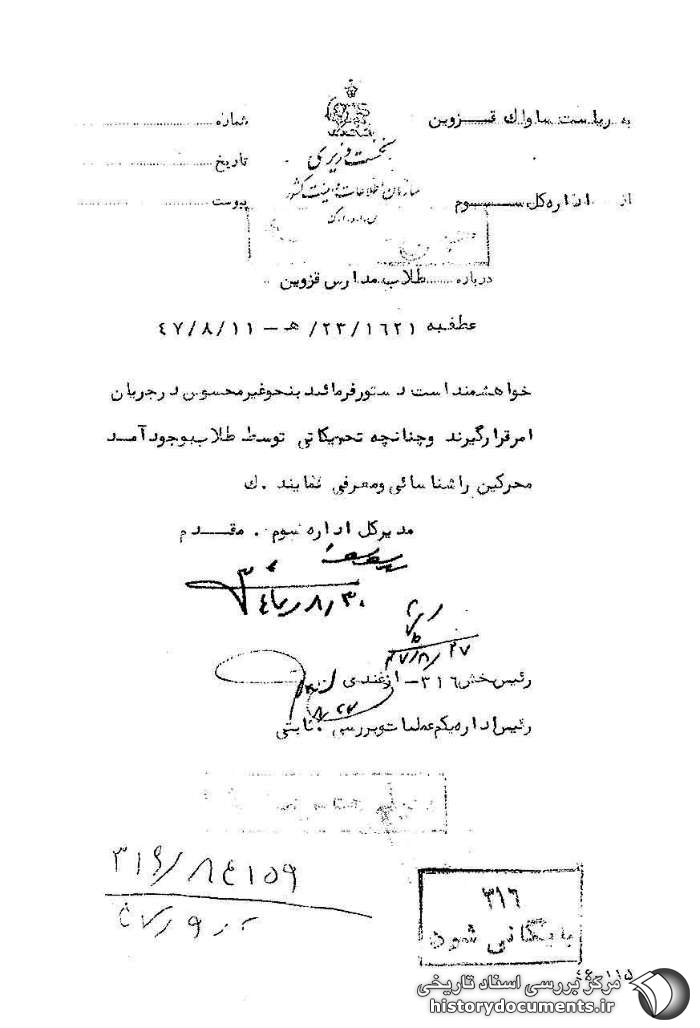 به ریاست ساواك قزوین
شماره
نخست وزیری
تاریخ
سازمان اطلاعات و امنیت کشور
از اداره کل سوم
پیوست
س.ا.و.ا.ك
درباره طلاب مدارس قزوین
عطف به ۲۳/۱۶۲۱/ هـ – ۴۷/۸/۱۱
خواهشمند است دستور فرمائید بنحو غیر محسوس در جریان
امر قرار گیرند و چنانچه تحریکاتی توسط طلاب بوجود آمد
محرکین را شناسائی و معرفی نمایند . ك
مدیر کل اداره سوم . مقدم
۴۷/۸/۳۰
۴۷/۸/۲۷
رئیس بخش ۳۱۶ – ازغندی
۸/۲۷
رئیس اداره یکم عملیات و بررسی . ثابتی
۳۱۶/۸۴۱۵۹
۳۱۶
بایگانی شود
مرکز بررسی اسناد تاریخی
historydocuments.ir